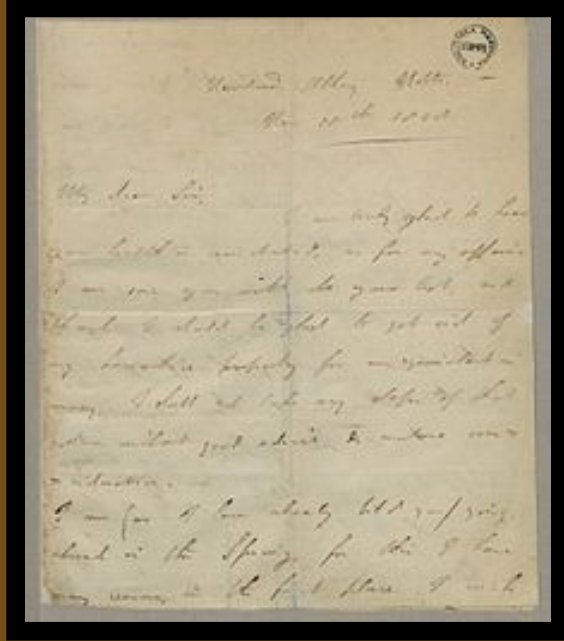 Newstead Abbey Notts.
Nov
My dear Sir,
I am truly glad to hear
your health is reinstated, as for my affairs
I am sure you will do your best, and
though I shall be glad to get rid of
my Lancashire property for an equivalent in
money, I shall not take any steps of that
nature without good advice & mature
I am (as I have already told you) going
abroad in the Spring, for this I have
many reasons, in the first place I wish